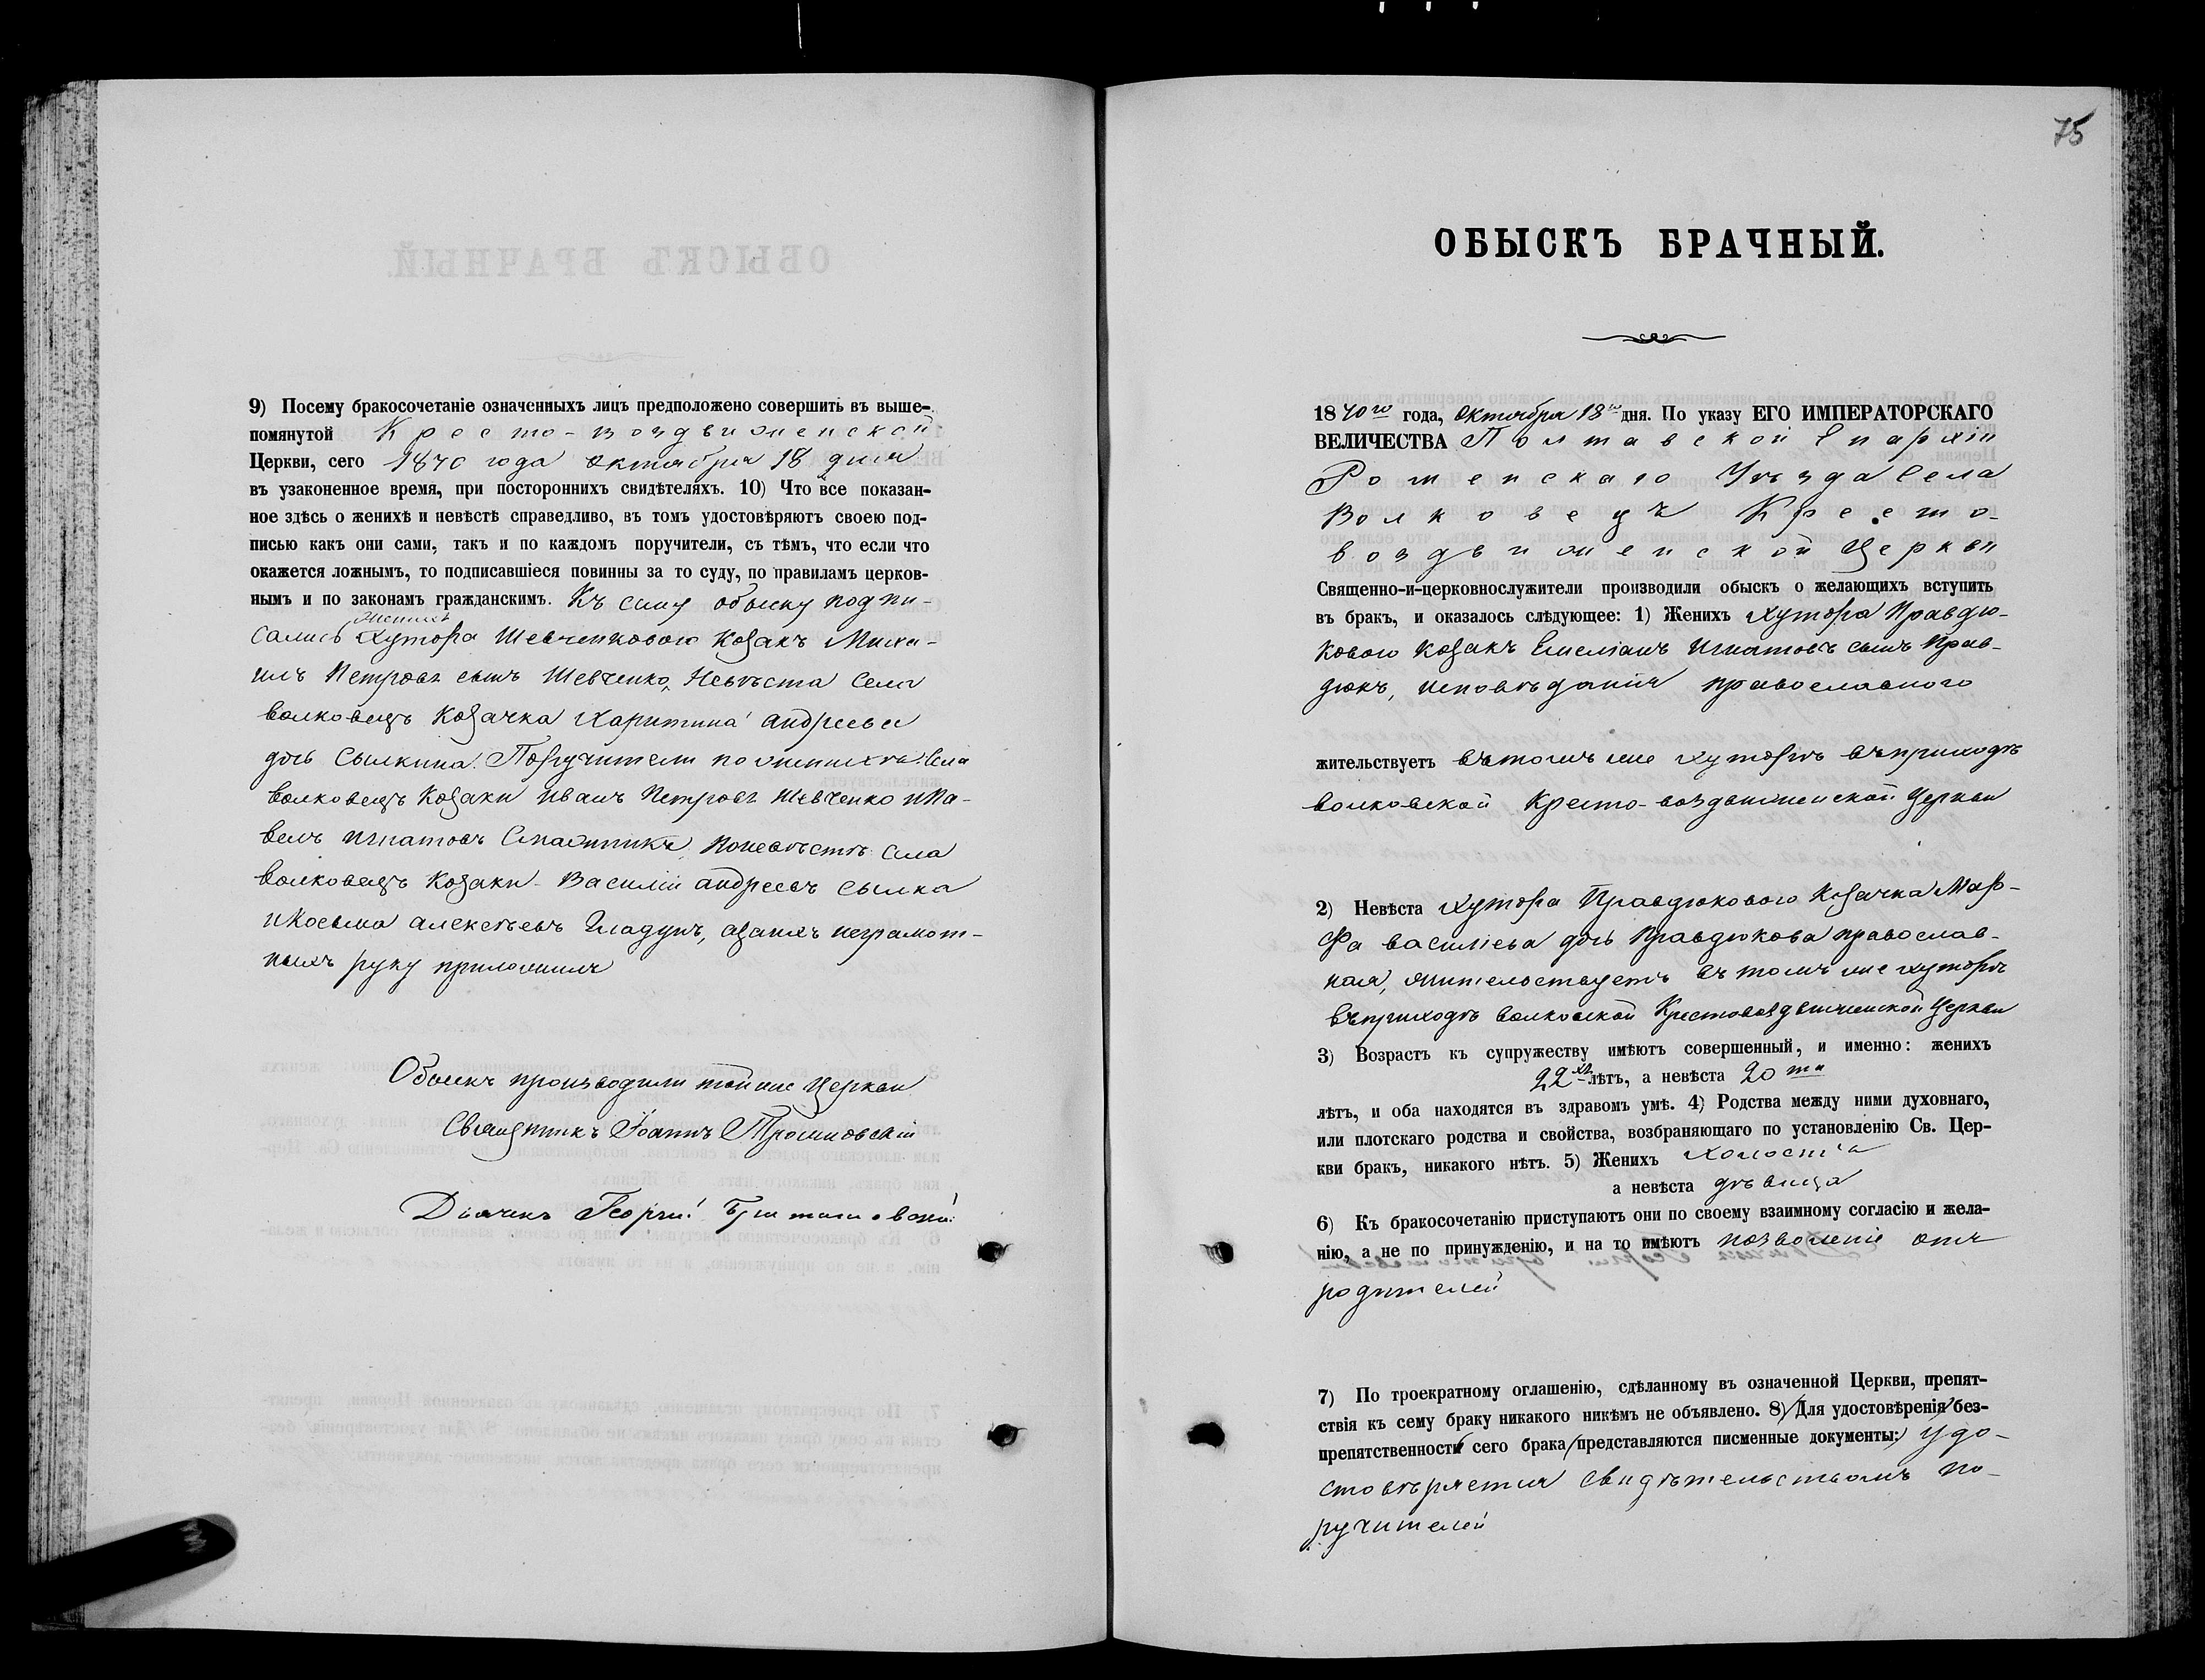 9) Посему бракосочетаніе означенныхъ лицъ предположено совершить въ выше-
помянутой Кресто-воздвиженской
Церкви, сего 1870 года октября 18 дня
въ узаконенное время, при постороннихъ свидѣтеляхъ. 10) Что все показан-
ное здѣсь о женихѣ и невѣстѣ справедливо, въ томъ удостовѣряютъ своею под-
писью какъ они сами, такъ и по каждомъ поручители, съ тѣмъ, что если что
окажется ложнымъ, то подписавшіеся повинны за то суду, по правиламъ церков-
нымъ и по законамъ гражданскимъ. Къ сему обыску подпи-
женихъ
сались Хутора Шевченкового козакъ Миха-
илъ Петровъ сынъ Шевченко, Невѣста Села
волковецъ Козачка Харитина андреева
дочь Сылкина. Поручители по женихѣ: Села
волковецъ Козаки Иванъ Петровъ Шевченко и Па-
велъ игнатовъ поневѣстѣ села
волковецъ Козаки Василій андреевъ сылка
и Косьма алексѣевъ Гладунъ, азанихъ неграмот-
ныхъ руку приложилъ
Обыскъ производили тойже Церкви
Священникъ Іоаннъ
Дьячекъ Георгій
75
ОБЫСКЪ БРАЧНЫЙ.
1870го года, Октября 18го дня. По указу ЕГО ИМПЕРАТОРСКАГО
ВЕЛИЧЕСТВА Полтавской Епархіи
Роменскаго Уѣзда Села
Волковецъ Кресто-
воздвиженской Церкви
Священно-и-церковнослужители производили обыскъ о желающихъ вступить
въ бракъ, и оказалось слѣдующее: 1) Женихъ Хутора Правдю-
кового козакъ Емеліанъ Игнатовъ сынъ Прав-
дюкъ, исповѣданія православного
жительствуетъ въ томъ же хуторѣ въ приходѣ
волковской Кресто-воздвиженской Церкви
2) Невѣста Хутора Правдюкового Козачка Мар-
фа василіева дочь Правдюкова православ-
ная, жительствуетъ въ томъ же хуторѣ
въ приходѣ волковской Крестовоздвиженской Церкви
3) Возрастъ къ супружеству имѣютъ совершенный, и именно: женихъ
22хъ лѣтъ, а невѣста 20ти
лѣтъ, и оба находятся въ здравомъ умѣ. 4) Родства между ними духовнаго,
или плотскаго родства и свойства, возбраняющаго по установленію Св. Цер-
кви бракъ, никакого нѣтъ. 5) Женихъ холостъ
а невѣста дѣвица
6) Къ бракосочетанію приступаютъ они по своему взаимному согласію и жела-
нію, а не по принужденію, и на то имѣютъ позволеніе отъ
родителей
7) По троекратному оглашенію, сдѣланному въ означенной Церкви, препят-
ствія къ сему браку никакого никѣмъ не объявлено. 8) Для удостовѣренія без-
препятственности сего брака представляются писменные документы: удо-
стовѣряется свидѣтельствомъ по-
ручителей